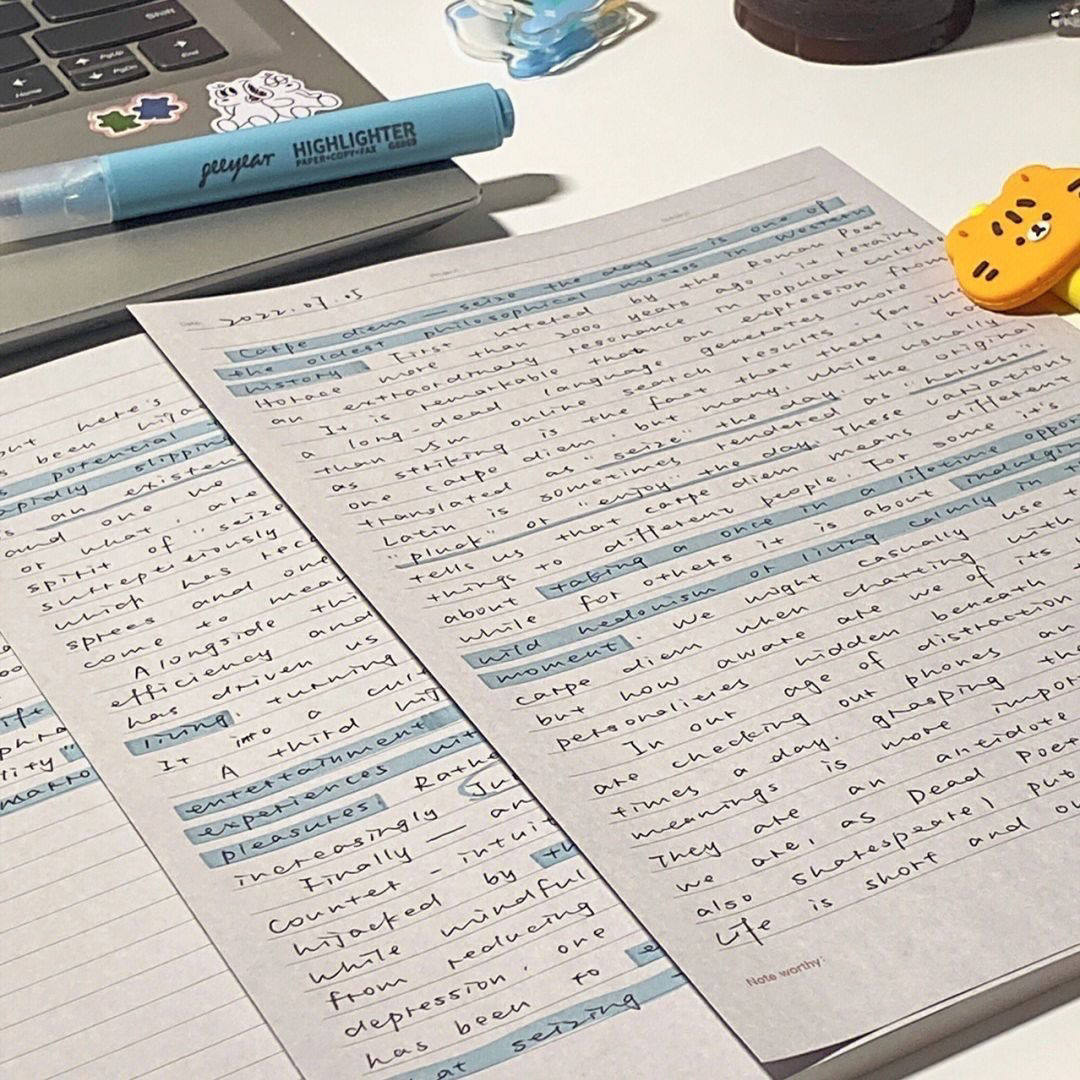 Shift
PgUp
PgDn
End
Home
geeyear HIGHLIGHTER
PAPER•COPY•FAX
Date
2022.07.05
Carpe diem — seize the day — is one of
the oldest philosophical mottos in Western
history. First uttered by the Roman Poet
Horace more than 2000 years ago, it retains
an extraordinary resonance in popular culture
It is remarkable that an expression from
a long-dead language generates more
than 25m online search results. Yet just
as striking is the fact that there is not
one carpe diem, but many. While usually
translated as "seize the day, the original
Latin is sometimes rendered as "harvest",
"pluck" or "enjoy" the day. These variations
tells us that carpe diem means different
things to different people. For some it's
about taking a once in a lifetime oppor
while for others it is about indulging
wild hedonism or living calmly in t
moment. We might casually use t
carpe diem when chatting with
but how aware are we of its
personalities hidden beneath t
In our age of distraction
are checking our phones an
times a day, grasping the
meanings is more impor
They are an antidote
we are, as Dead Poet
also Shakespeare) put
Life is short and ou
Note worthy:
but here's
s been hija
s potential
apidly slipping
an existen
and one we
or what, are
spirit of "seize
surreptitiously
which has
sprees and one
come to mean
Alongside th
efficiency and
has driven us
living, turning
It into a cul
A third hij
entertainment
experiences wit
pleasures. Rathe
increasingly Ju
Finally — an
counter-intuit
hijacked by th
while mindful
from reducing
depression, one
has been to e
hat seizing
ift
phra
tity "